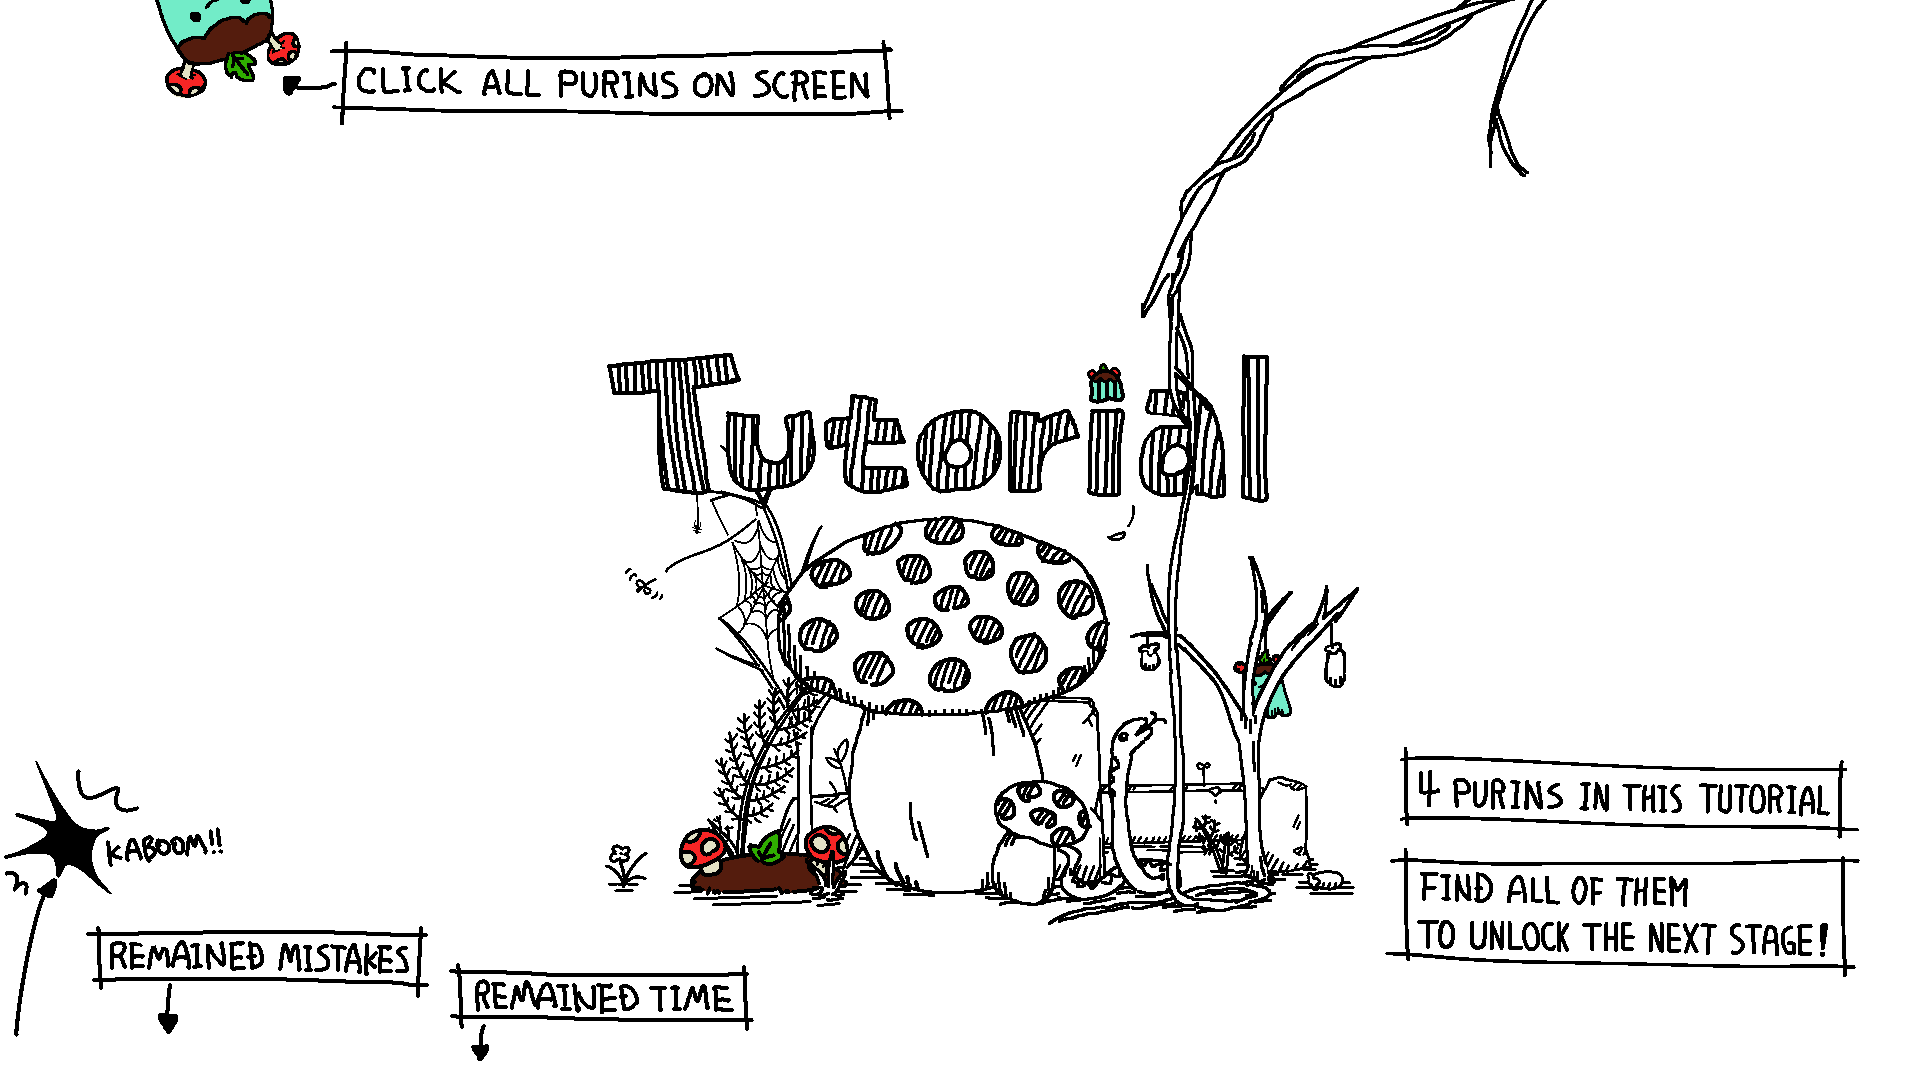 CLICK ALL PURINS ON SCREEN
Tutorial
4 PURINS IN THIS TUTORIAL
KABOOM!!
FIND ALL OF THEM
TO UNLOCK THE NEXT STAGE!
REMAINED MISTAKES
REMAINED TIME